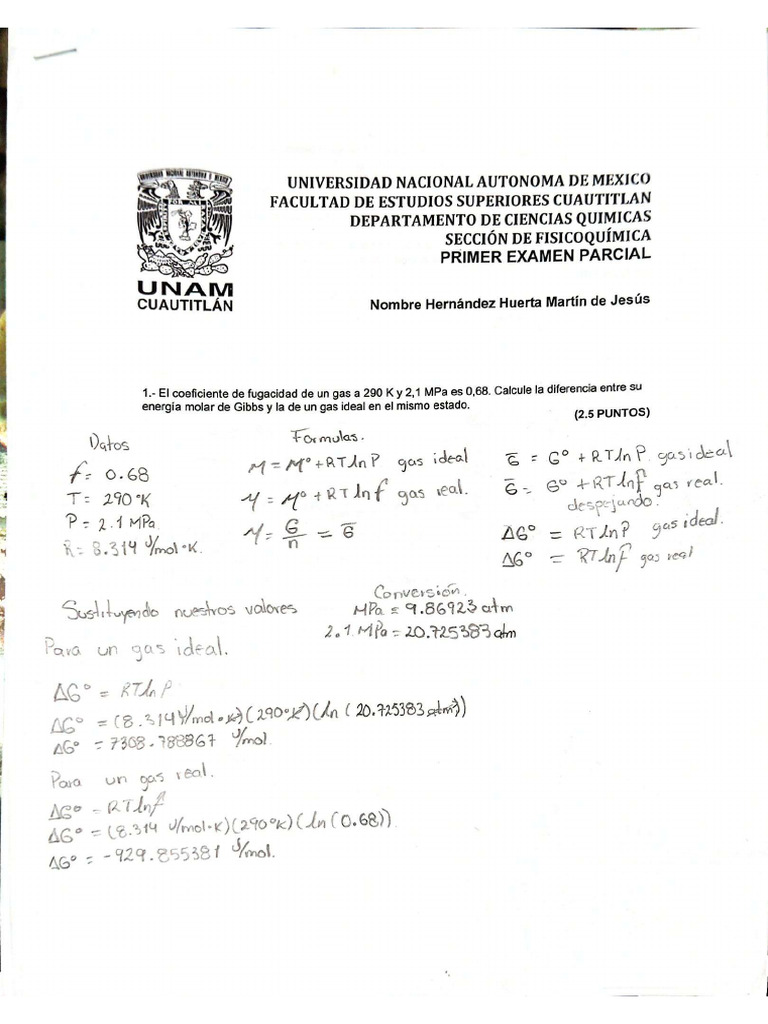 UNIVERSIDAD NACIONAL AUTONOMA DE MEXICO
FACULTAD DE ESTUDIOS SUPERIORES CUAUTITLAN
DEPARTAMENTO DE CIENCIAS QUIMICAS
SECCIÓN DE FISICOQUÍMICA
PRIMER EXAMEN PARCIAL
UNAM
CUAUTITLÁN
Nombre Hernández Huerta Martín de Jesús
1.- El coeficiente de fugacidad de un gas a 290 K y 2,1 MPa es 0,68. Calcule la diferencia entre su
energía molar de Gibbs y la de un gas ideal en el mismo estado.
(2.5 PUNTOS)
Datos
f = 0.68
T = 290 °K
P = 2.1 MPa
R = 8.314 J/mol°K.
Formulas.
M = M° + RT ln P gas ideal
M = M° + RT ln f gas real.
M = G/n = G̅
G̅ = G° + RT ln P gas ideal
G̅ = G° + RT ln f gas real.
despejando.
ΔG° = RT ln P gas ideal.
ΔG° = RT ln f gas real
Sustituyendo nuestros valores
Conversión.
MPa = 9.86923 atm
2.1 MPa = 20.725383 atm
Para un gas ideal.
ΔG° = RT ln P
ΔG° = (8.314 J/mol°K)(290°K)(ln(20.725383 atm))
ΔG° = 7308.788867 J/mol.
Para un gas real.
ΔG° = RT ln f
ΔG° = (8.314 J/mol·K)(290°K)(ln(0.68))
ΔG° = -929.855381 J/mol.